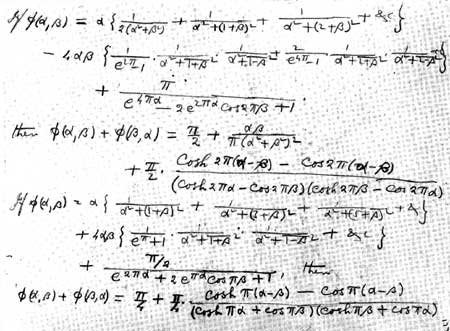 If φ(α,β) = α { 1/2(α²+β²) + 1/α²+(1+β)² + 1/α²+(2+β)² + &c }
− 4αβ { 1/e^2π−1 · 1/α²+(1+β)² · 1/α²+(1−β)² + 2/e^4π−1 · 1/α²+(2+β)² · 1/α²+(2−β)² + &c }
+ π/e^4πα − 2e^2πα cos2πβ + 1 ·
then φ(α,β) + φ(β,α) = π/2 + αβ/π(α²+β²)²
+ π/2 · Cosh 2π(α−β) − Cos 2π(α−β)/(Cosh 2πα − Cos 2πβ)(Cosh 2πβ − Cos 2πα)
If φ(α,β) = α { 1/α²+(1+β)² + 1/α²+(3+β)² + 1/α²+(5+β)² + &c }
+ 4αβ { 1/e^π+1 · 1/α²+(1+β)² · 1/α²+(1−β)² + &c }
+ π/2/e^2πα + 2e^πα cosπβ + 1, then
φ(α,β) + φ(β,α) = π/4 + π/4 · Cosh π(α−β) − Cosπ(α−β)/(Cosh πα + cosπβ)(Coshπβ + Cosπα)